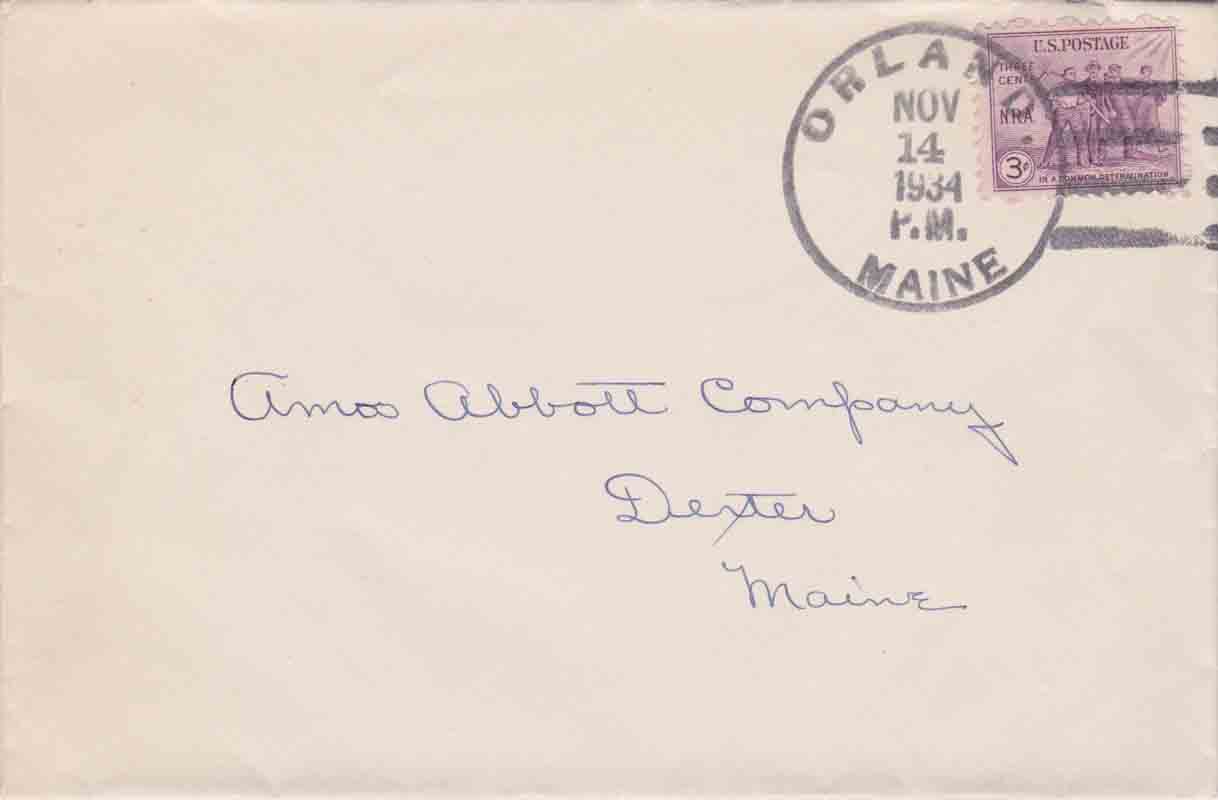 ORLAND
NOV
14
1934
P.M.
MAINE
U.S.POSTAGE
THREE
CENTS
NRA
3¢
IN A COMMON DETERMINATION
Amos Abbott Company
Dexter
Maine